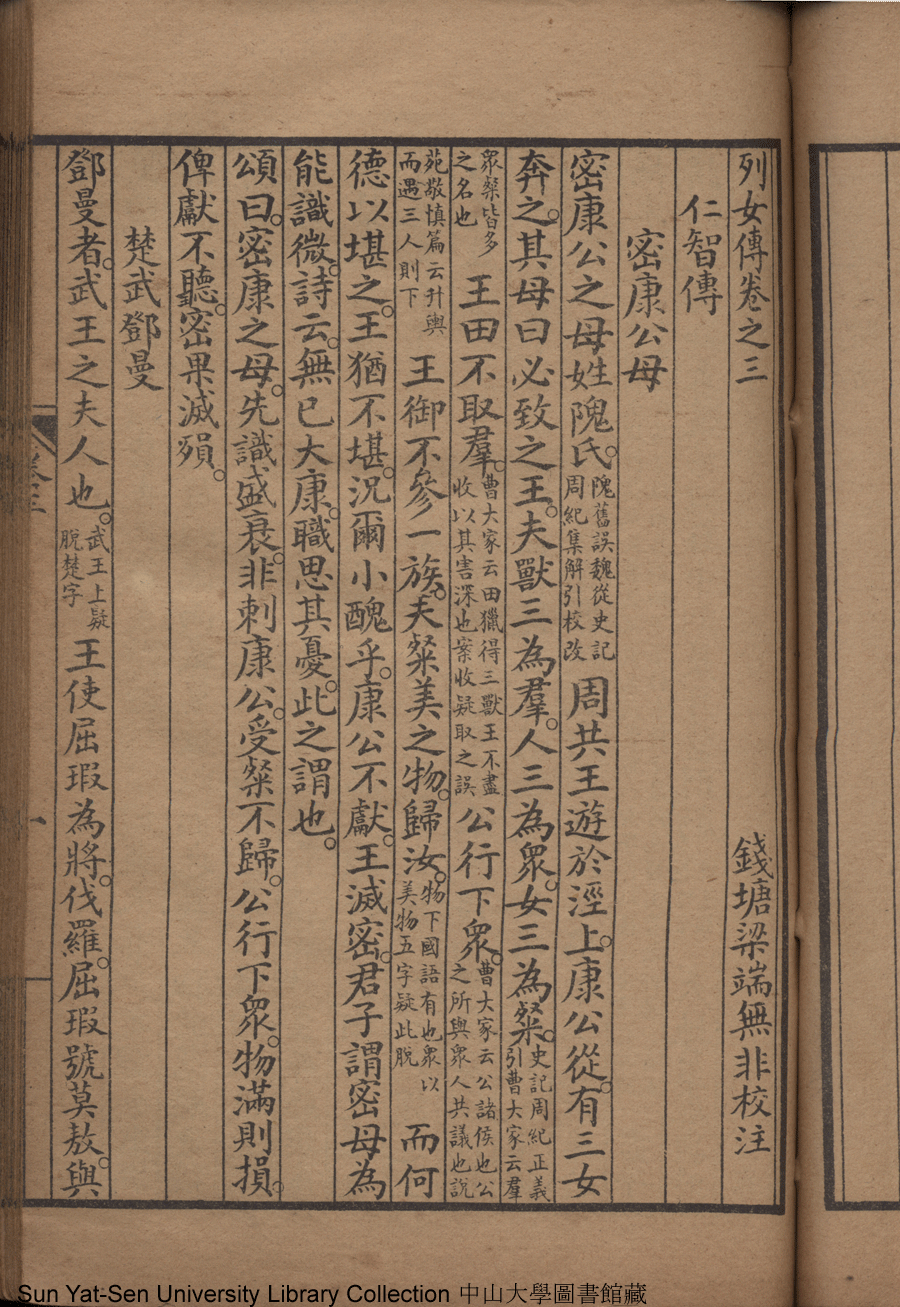 列女傳卷之三　錢塘梁端無非校注
仁智傳
密康公母
密康公之母姓隗氏。隗舊誤魏從史記周紀集解引校改周共王遊於涇上。康公從。有三女
奔之。其母曰必致之王。夫獸三為羣。人三為眾。女三為粲。史記周紀正義引曹大家云羣
眾粲皆多之名也王田不取羣。曹大家云田獵得三獸王不盡收以其害深也案收疑取之誤公行下眾。曹大家云公諸侯也公之所與眾人共議也說
苑敬慎篇云升輿而遇三人則下王御不參一族。夫粲美之物。歸汝。物下國語有也眾以美物五字疑此脫而何
德以堪之。王猶不堪。況爾小醜乎。康公不獻。王滅密。君子謂密母為
能識微。詩云。無已大康。職思其憂。此之謂也。
頌曰。密康之母。先識盛衰。非刺康公。受粲不歸。公行下眾。物滿則損。
俾獻不聽。密果滅殞。
楚武鄧曼
鄧曼者。武王之夫人也。武王上疑脫楚字王使屈瑕為將。伐羅。屈瑕號莫敖。與
卷三
一
Sun Yat-Sen University Library Collection 中山大學圖書館藏